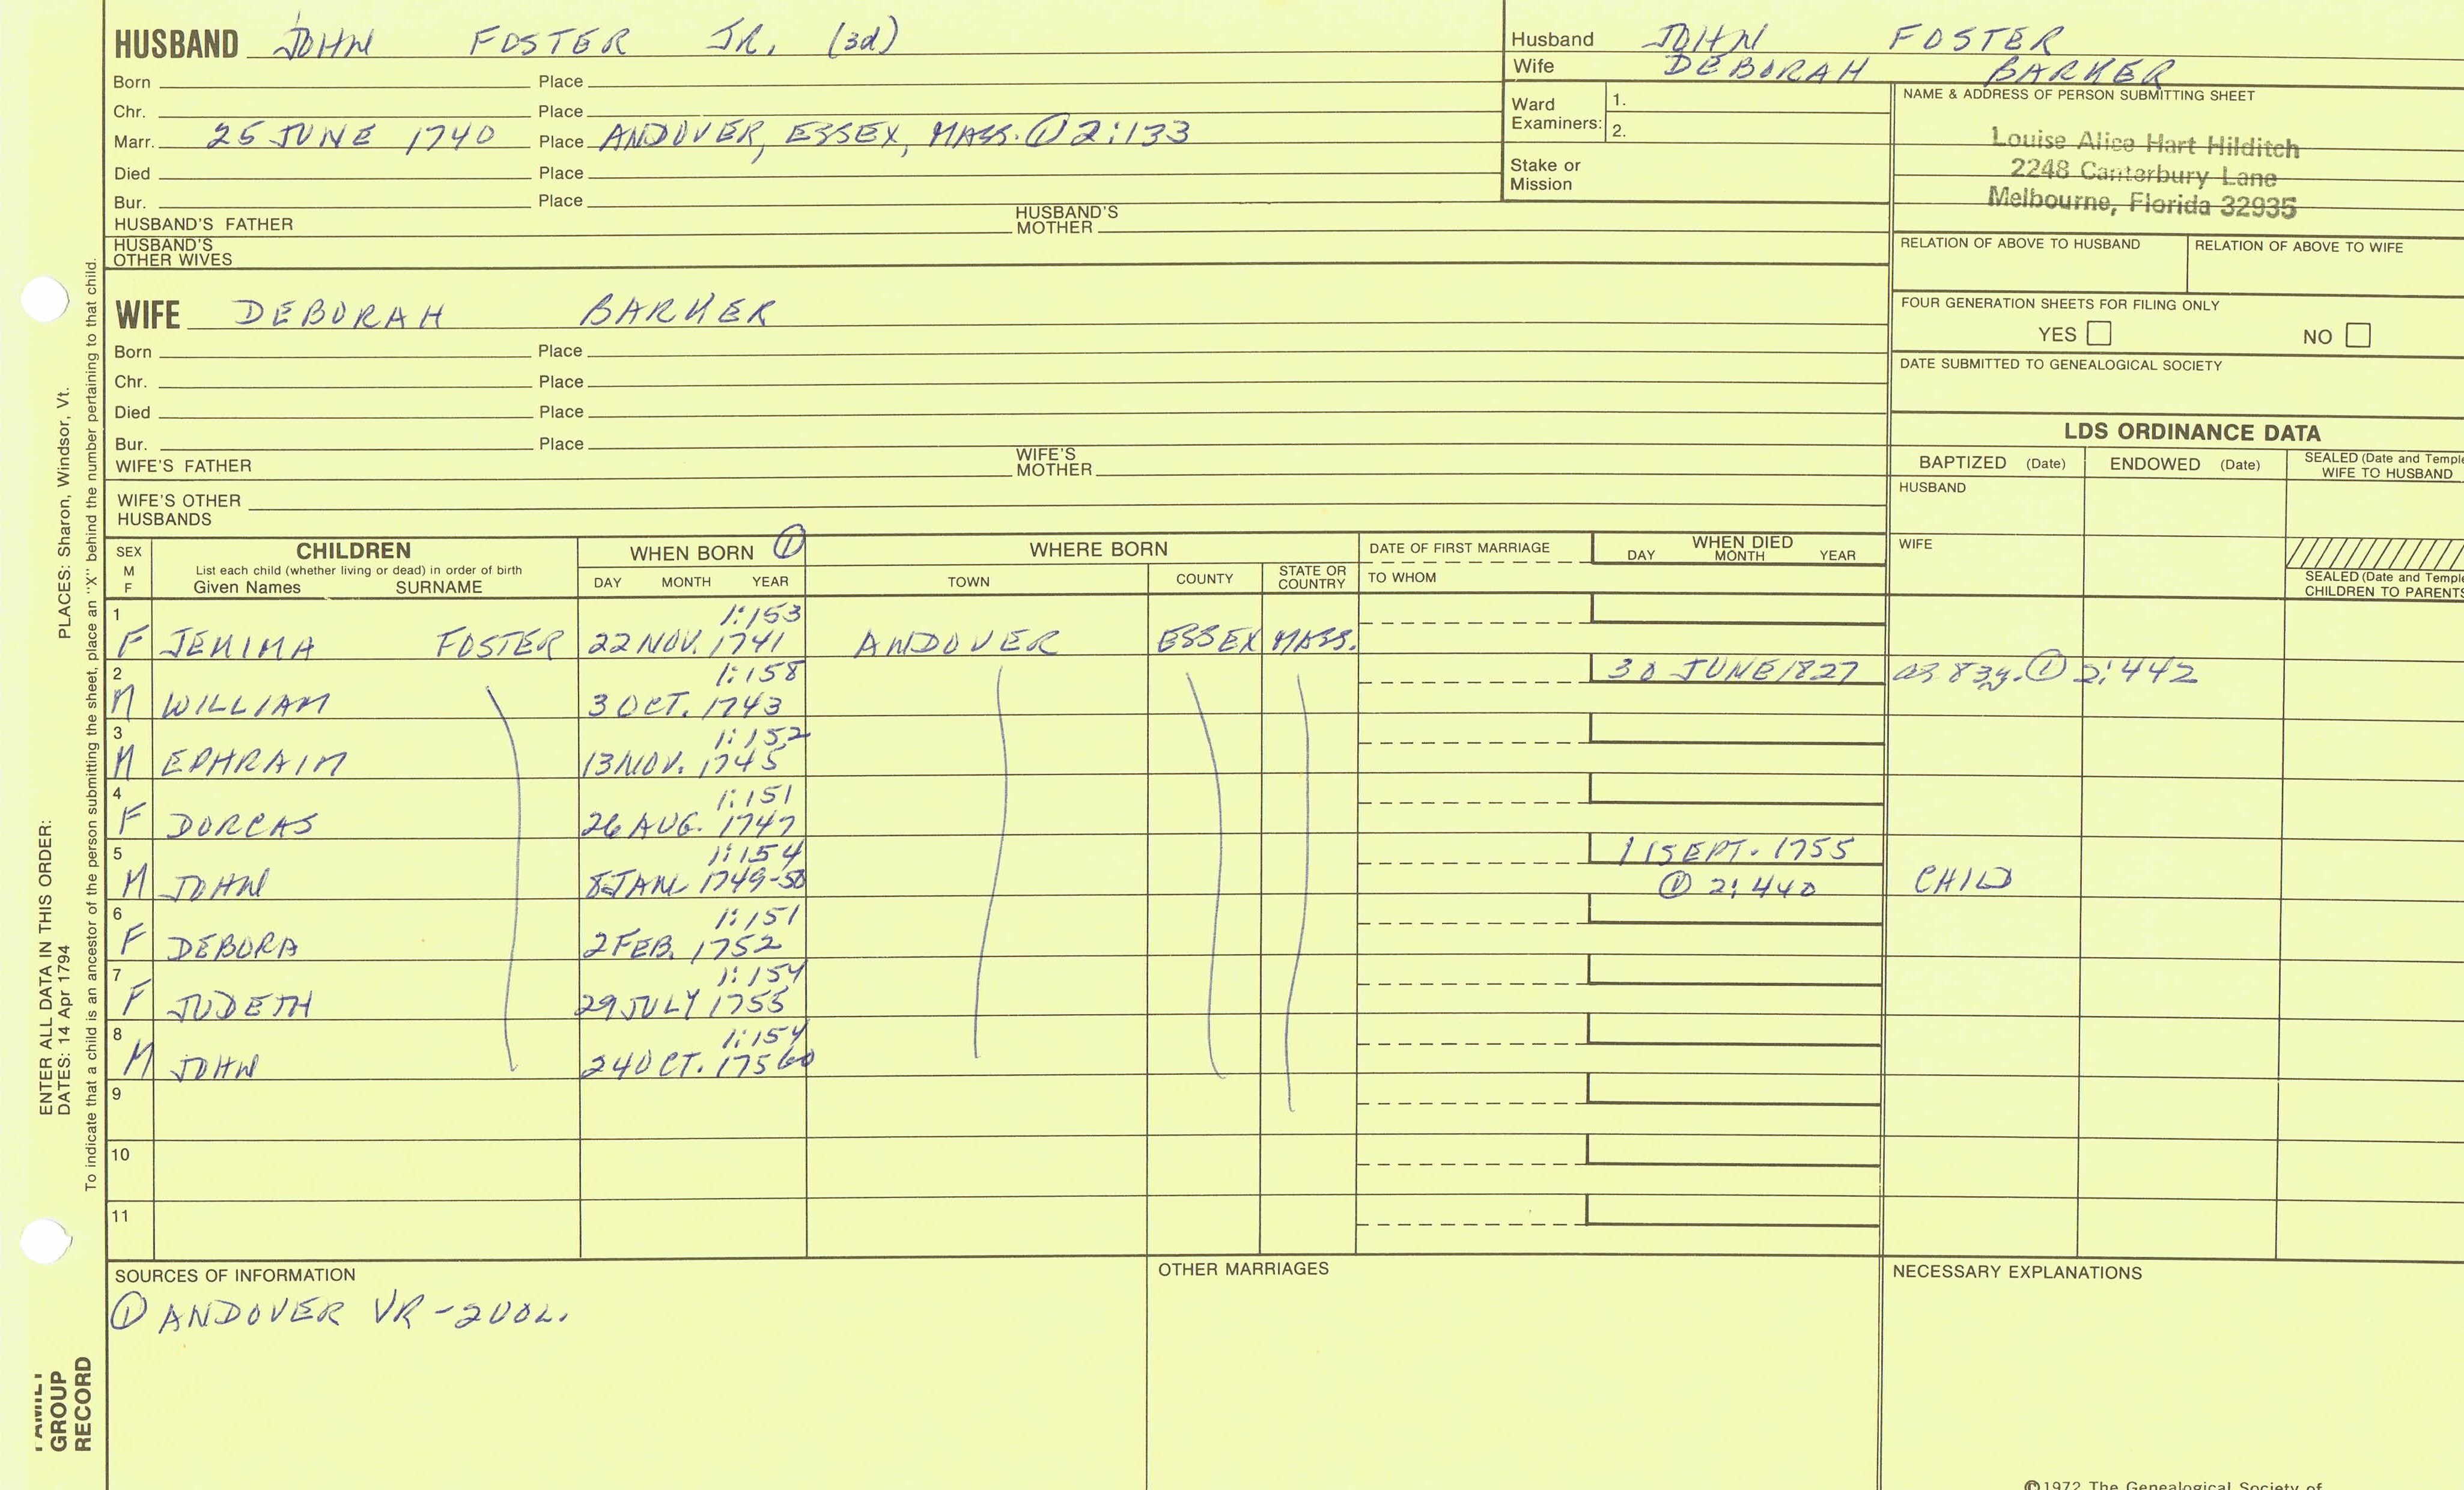 HUSBAND JOHN FOSTER JR. (3d)
Born Place
Chr. Place
Marr. 25 JUNE 1740 Place ANDOVER, ESSEX, MASS. ① 2:133
Died Place
Bur. Place
HUSBAND'S FATHER HUSBAND'S MOTHER
HUSBAND'S OTHER WIVES
Husband JOHN FOSTER
Wife DEBORAH BARKER
Ward Examiners: 1.
2.
Stake or Mission
NAME & ADDRESS OF PERSON SUBMITTING SHEET
Louise Alice Hart Hilditch
2248 Canterbury Lane
Melbourne, Florida 32935
RELATION OF ABOVE TO HUSBAND RELATION OF ABOVE TO WIFE
FOUR GENERATION SHEETS FOR FILING ONLY
YES NO
DATE SUBMITTED TO GENEALOGICAL SOCIETY
WIFE DEBORAH BARKER
Born Place
Chr. Place
Died Place
Bur. Place
WIFE'S FATHER WIFE'S MOTHER
WIFE'S OTHER HUSBANDS
LDS ORDINANCE DATA
BAPTIZED (Date) ENDOWED (Date) SEALED (Date and Temple
WIFE TO HUSBAND
HUSBAND
WIFE
SEALED (Date and Temple
CHILDREN TO PARENTS
SEX
M
F
CHILDREN
List each child (whether living or dead) in order of birth
Given Names SURNAME
WHEN BORN ①
DAY MONTH YEAR
WHERE BORN
TOWN COUNTY STATE OR COUNTRY
DATE OF FIRST MARRIAGE
TO WHOM
WHEN DIED
DAY MONTH YEAR
1 1:153
F JEMIMA FOSTER 22 NOV. 1741 ANDOVER ESSEX MASS.
2 1:158 30 JUNE 1827 ag 83y. ① 2:442
M WILLIAM 3 OCT. 1743
3 1:152
M EPHRAIM 13 NOV. 1745
4 1:151
F DORCAS 26 AUG. 1747
5 1:154 11 SEPT. 1755
M JOHN 8 JAN 1749-50 ① 2:440 CHILD
6 1:151
F DEBORA 2 FEB. 1752
7 1:154
F JUDETH 29 JULY 1755
8 1:154
M JOHN 24 OCT. 1760
9
10
11
SOURCES OF INFORMATION
① ANDOVER VR-2VOL.
OTHER MARRIAGES
NECESSARY EXPLANATIONS
©1972 The Genealogical Society of
ENTER ALL DATA IN THIS ORDER:
DATES: 14 Apr 1794 PLACES: Sharon, Windsor, Vt.
To indicate that a child is an ancestor of the person submitting the sheet, place an "X" behind the number pertaining to that child.
FAMILY
GROUP
RECORD